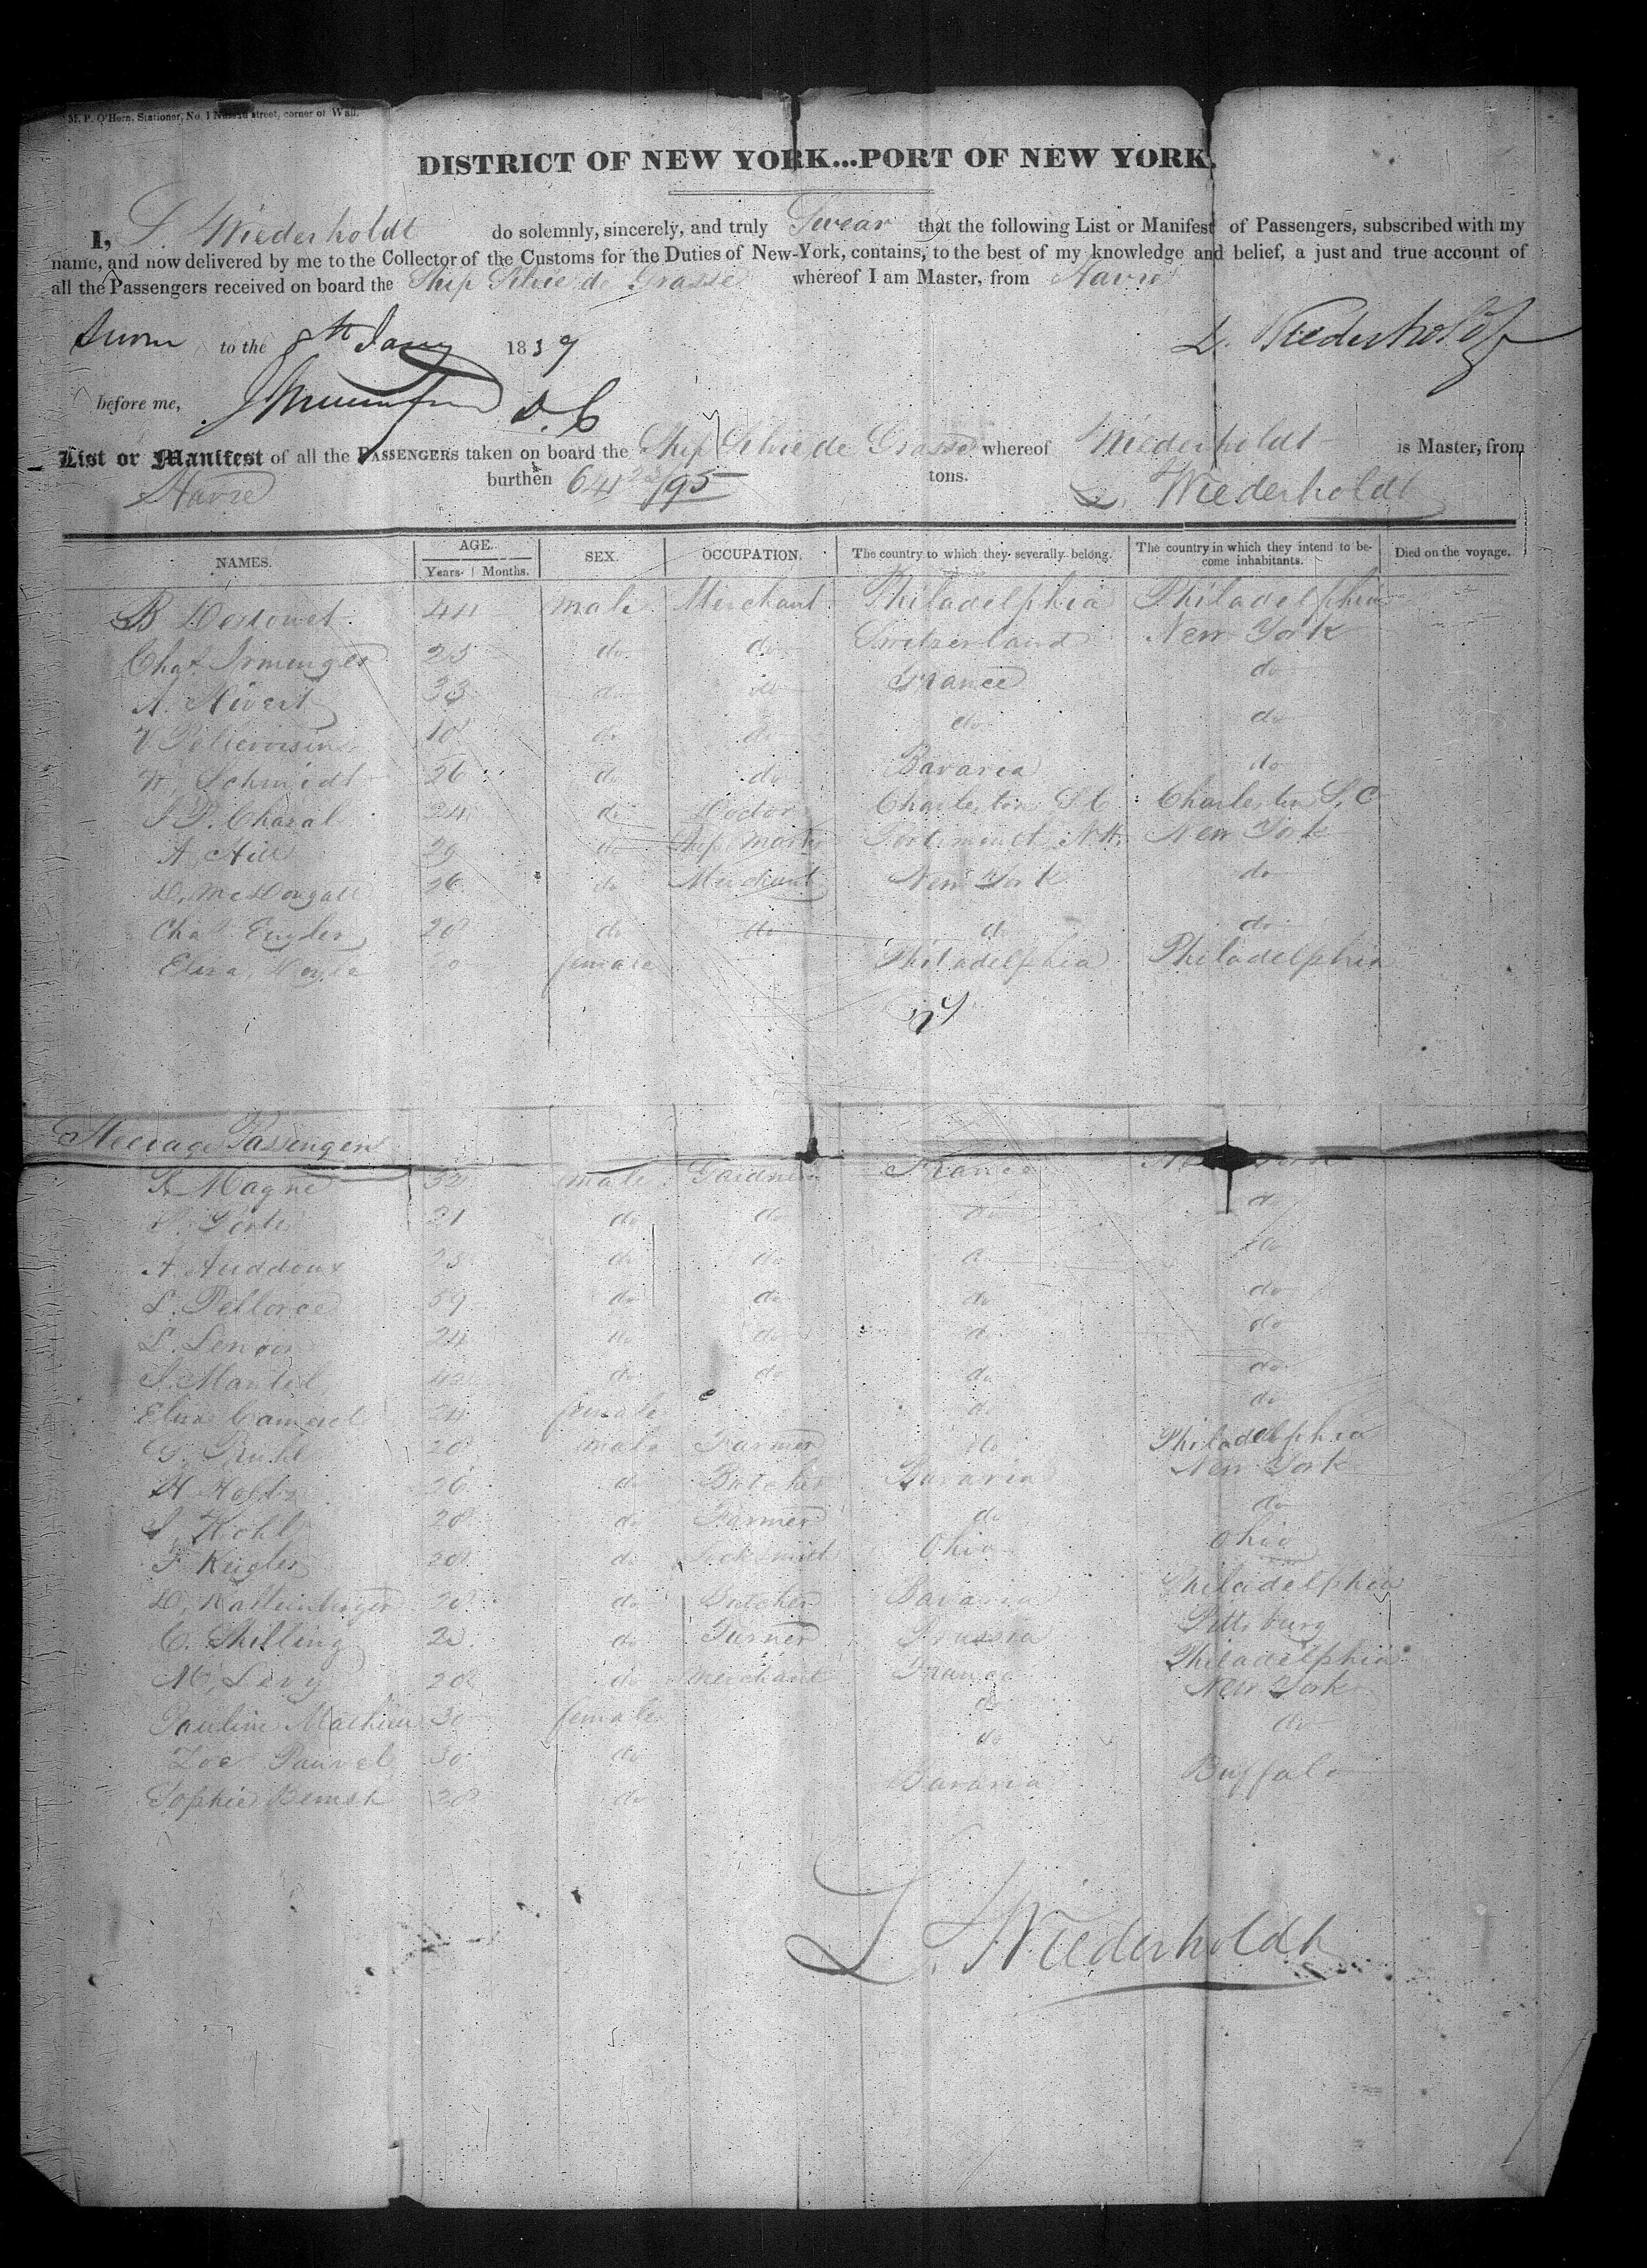 M. P. O'Hern, Stationer, No. 1 Nassau street, corner of Wall.
DISTRICT OF NEW YORK...PORT OF NEW YORK.
I, L. Wiederholdt do solemnly, sincerely, and truly Swear that the following List or Manifest of Passengers, subscribed with my
name, and now delivered by me to the Collector of the Customs for the Duties of New-York, contains, to the best of my knowledge and belief, a just and true account of
all the Passengers received on board the Ship Silvie de Grasse whereof I am Master, from Havre
Sworn to the 8th Jany 1839 L. Wiederholdt
before me, D. C
List or Manifest of all the PASSENGERS taken on board the Ship Silvie de Grasse whereof Wiederholdt is Master, from
Havre burthen 641 23/95 tons. L. Wiederholdt
NAMES. AGE. SEX. OCCUPATION. The country to which they severally belong. The country in which they intend to become inhabitants. Died on the voyage.
Years. Months.
B 44 male Merchant Philadelphia Philadelphia
Chas. Irminger 25 do do Switzerland New York
A. 33 do do France do
V. 18 do do do do
Schmidt 26 do do Bavaria do
Chazal 24 do Doctor Charleston S.C Charleston S.C
A. Hill 29 do Ship Master Portsmouth N.H. New York
D. McDougall 26 do Merchant New York do
Chas. Engler 28 do do do do
Eliza 20 female Philadelphia Philadelphia
Steerage Passengers
Magne 32 male Gardner France New York
21 do do do do
A. Auddoux 25 do do do do
L. Pellorce 39 do do do do
L. Lenoir 24 do do do do
Mantel 42 do do do do
Elise 24 female do do
G. Ruhl 28 male Farmer do Philadelphia
H Holtz 26 do Butcher Bavaria New York
Kohl 28 do Farmer do do
F. Kugler 28 do Locksmith Ohio Ohio
D. Kallenberger 28 do Butcher Bavaria Philadelphia
C. Shilling 22 do Turner Prussia Pittsburg
M. Levy 28 do Merchant France Philadelphia
Pauline Mathieu 30 female do New York
Zoe 30 do do do
Sophie 38 do Bavaria Buffalo
L. Wiederholdt